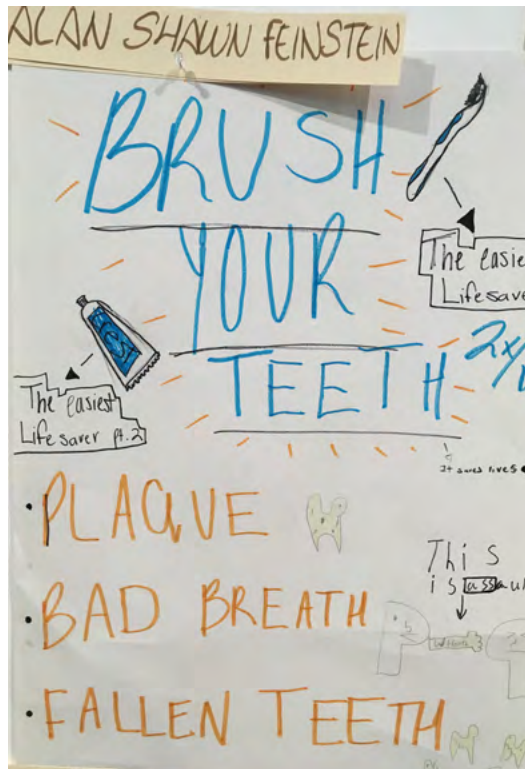 ALAN SHAWN FEINSTEIN
BRUSH
YOUR
TEETH
The easies
Lifesave
2x/
The easiest
Life saver pt.2
It saves lives
• PLAQUE
This
is assau
• BAD BREATH
• FALLEN TEETH